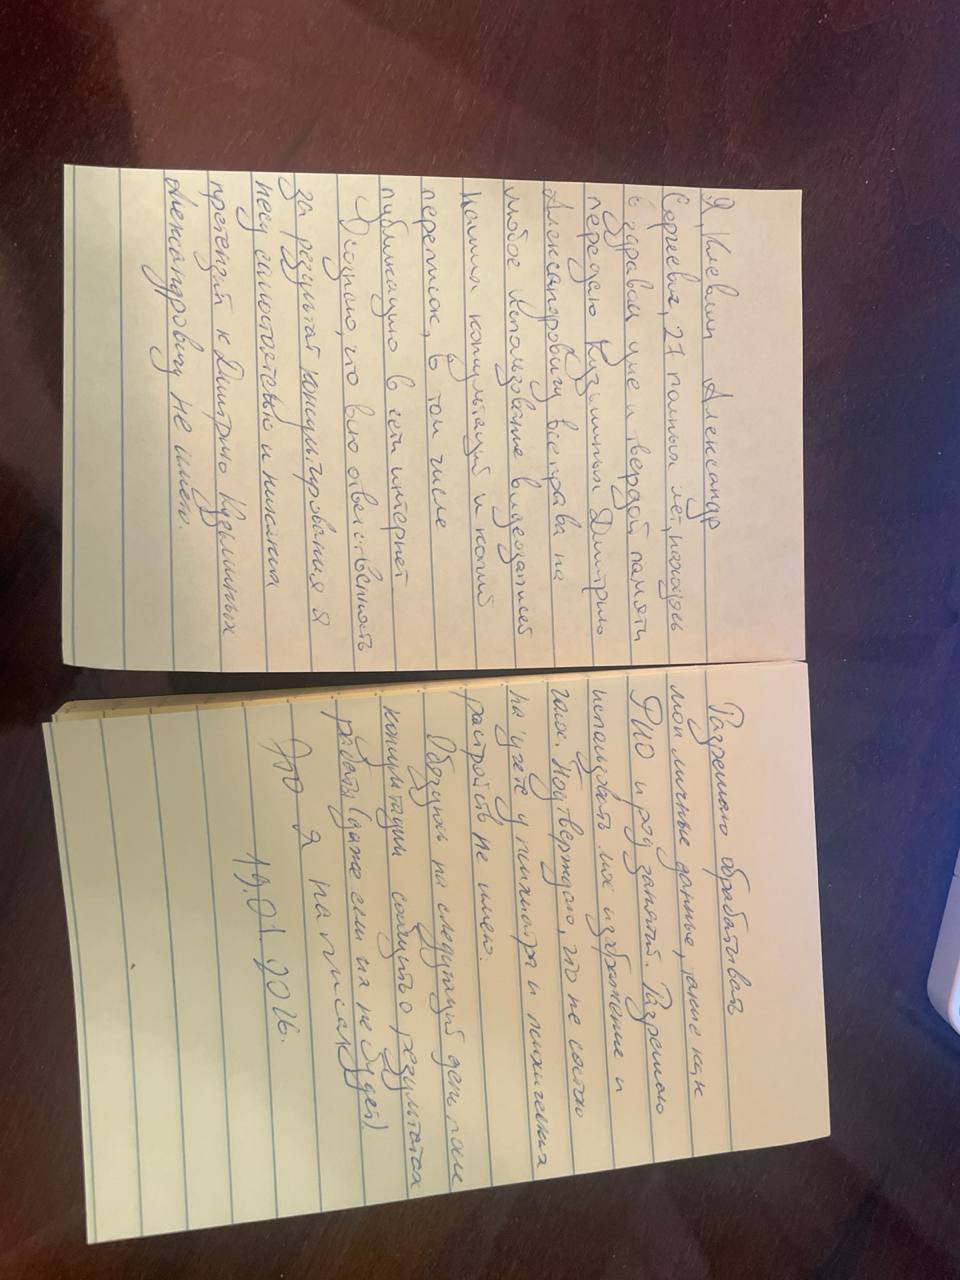 Я, Клевлин Александр
Сергеевич, 27 полных лет, находясь
в здравом уме и твердой памяти
передаю Кузьминых Дмитрию
Александровичу все права на
любое использование видеозаписей
наших консультаций и копий
переписок, в том числе
публикацию в сети интернет.
Я осознаю, что всю ответственность
за результат консультирования я
несу самостоятельно и никаких
претензий к Дмитрию Кузьминых
Александровичу не имею.
Разрешаю обрабатывать
мои личные данные, такие как
ФИО и род занятий. Разрешаю
использовать мое изображение и
голос. Подтверждаю, что не состою
на учете у психиатра и психических
расстройств не имею.
Обязуюсь на следующий день после
консультации сообщить о результатах
работы (даже если их не будет)
Это я написал
19.01.2026.